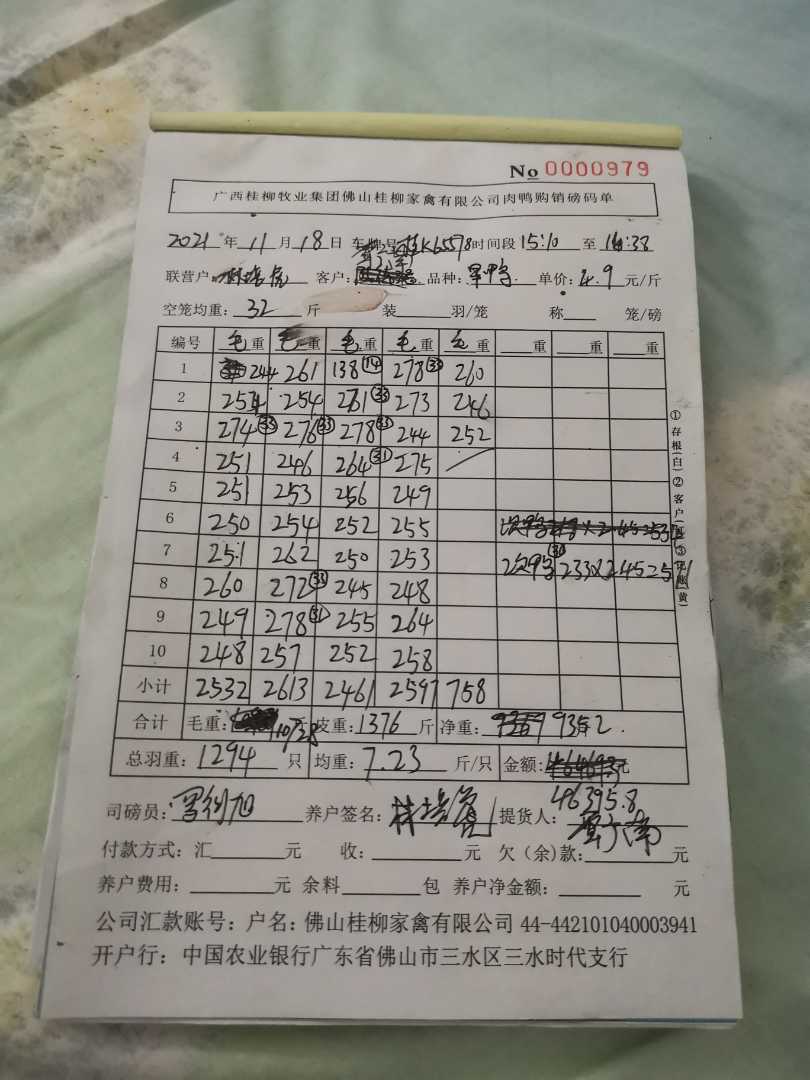 No 0000979
广西桂柳牧业集团佛山桂柳家禽有限公司肉鸭购销磅码单
2021 年 11 月 18 日 车牌号 桂K65578 时间段 15:10 至 16:38
联营户: 客户: 品种: 单价: 4.9 元/斤
空笼均重: 32 斤 装 羽/笼 称 笼/磅
编号 毛重 毛重 毛重 毛重 毛重 重 重 重
1 244 261 138 (14) 278 (33) 260
2 254 254 261 (33) 273 246
3 274 (33) 276 (33) 278 (33) 244 252
4 251 246 264 (31) 275
5 251 253 256 249
6 250 254 252 255
7 251 262 250 253 次鸭 (30)
8 260 272 (33) 245 248
9 249 278 (31) 255 264
10 248 257 252 258
小计 2532 2613 2461 2597 758
合计 毛重: 10728 斤 皮重: 1376 斤 净重: 9352
总羽重: 1294 只 均重: 7.23 斤/只 金额: 元
46395.8
司磅员: 养户签名: 提货人:
付款方式: 汇 元 收: 元 欠(余)款: 元
养户费用: 元 余料 包 养户净金额: 元
公司汇款账号: 户名: 佛山桂柳家禽有限公司 44-442101040003941
开户行: 中国农业银行广东省佛山市三水区三水时代支行
①存根(白)②客户(红)③
(黄)